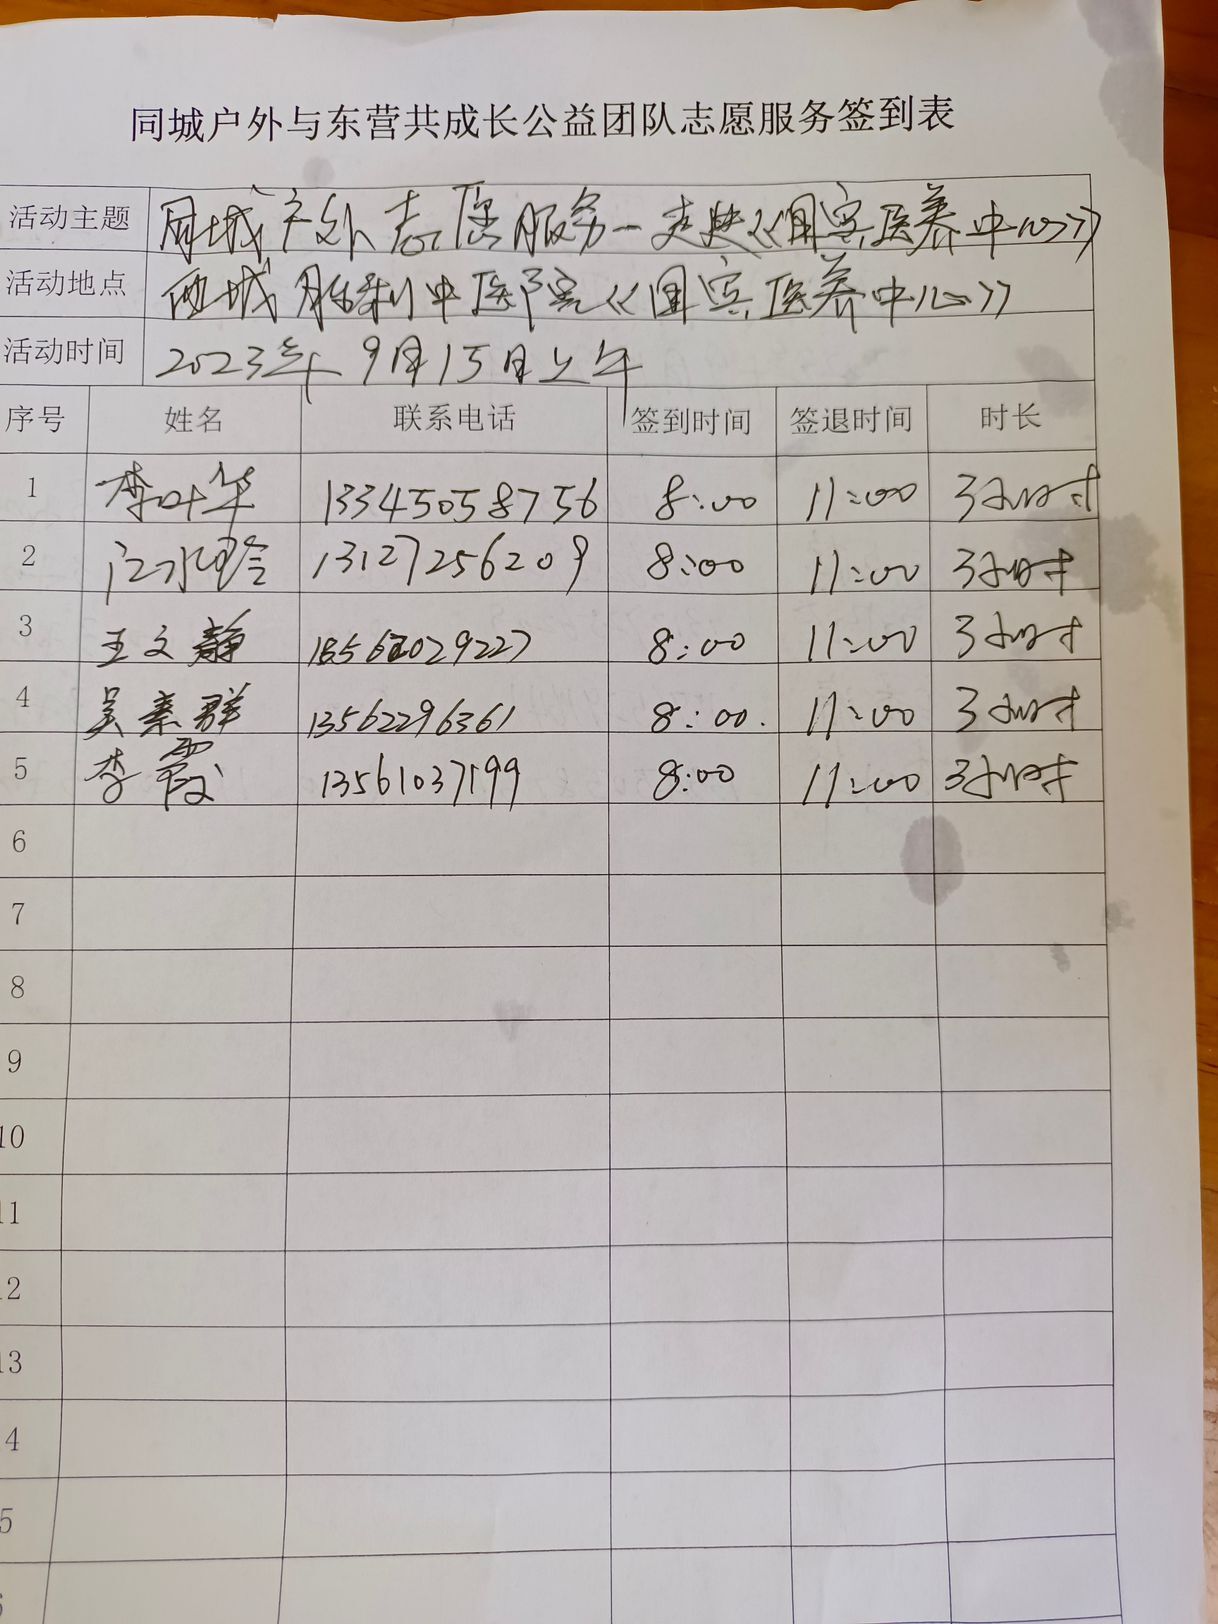 同城户外与东营共成长公益团队志愿服务签到表
活动主题 同城户外志愿服务—走进《国宾医养中心》
活动地点 西城胜利中医院《国宾医养中心》
活动时间 2023年9月15日上午
序号 姓名 联系电话 签到时间 签退时间 时长
1 李叶华 13345058756 8:00 11:00 3小时
2 13127256209 8:00 11:00 3小时
3 王文静 8:00 11:00 3小时
4 吴秦群 13562296361 8:00. 11:00 3小时
5 李霞 13561037199 8:00 11:00 3小时
6
7
8
9
10
11
12
13
14
15